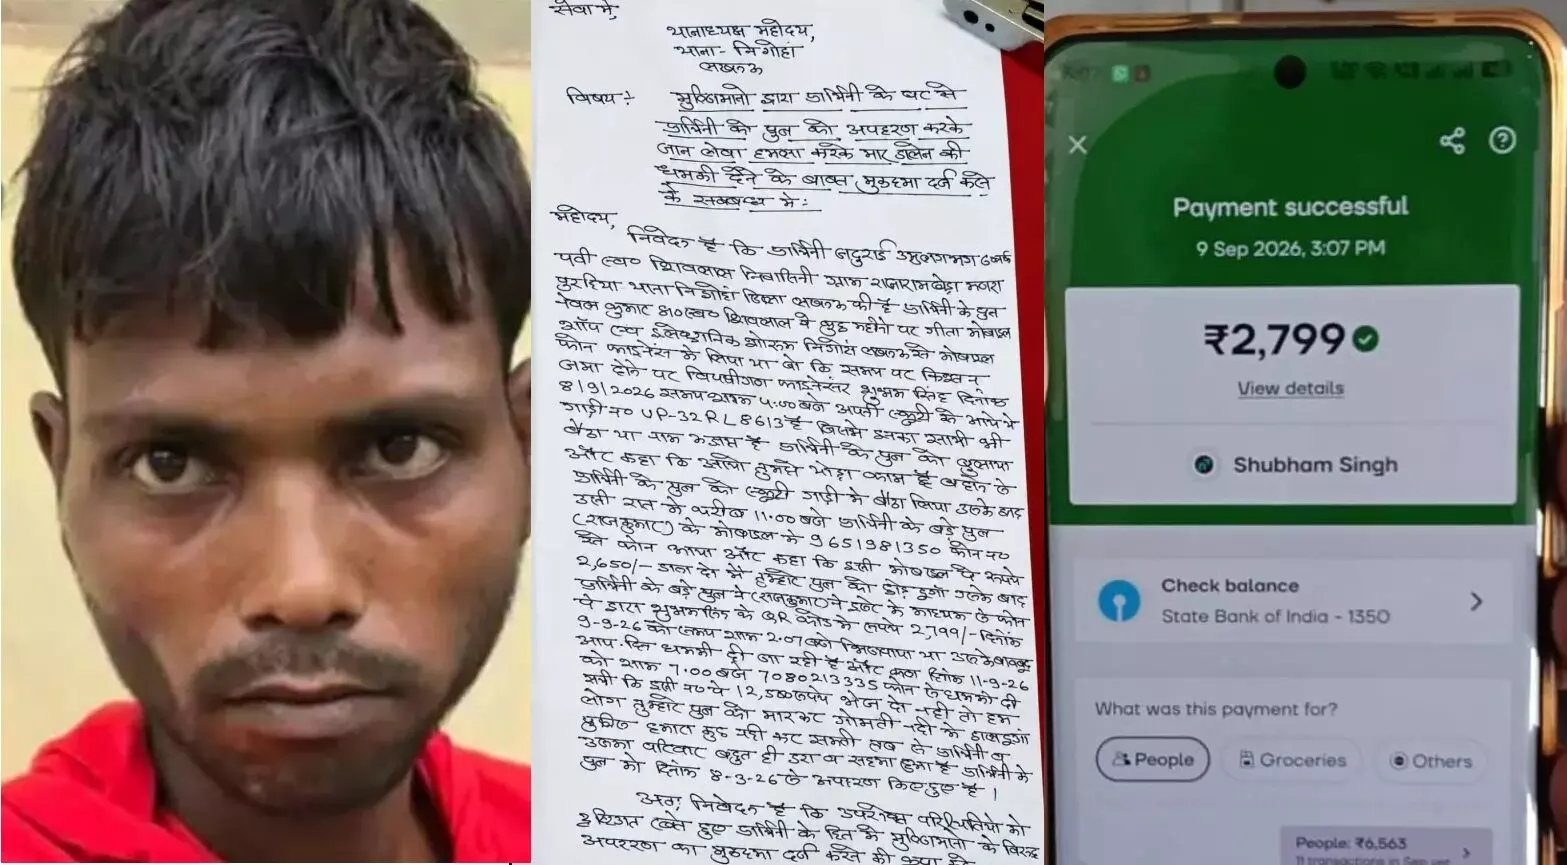 सेवा में,
थानाध्यक्ष महोदय,
थाना - निगोहां
लखनऊ
विषय :- मुल्जिमानो द्वारा प्रार्थिनी के घर से
प्रार्थिनी के पुत्र को अपहरण करके
जान लेवा हमला करके मार डालने की
धमकी देने के बावत मुकदमा दर्ज करने
के सम्बन्ध में :
महोदय,
निवेदन है कि प्रार्थिनी
पत्नी स्व० शिवलाल निवासिनी ग्राम राजारामखेड़ा मजरा
पुरहिया थाना निगोहां जिला लखनऊ की है प्रार्थिनी के पुत्र
कुमार शिवलाल ने महीने पर गीता मोबाइल
शॉप इलेक्ट्रानिक शोरूम निगोहां लखनऊ से मोबाइल
फोन फाइनेंस में लिया था जो कि समय पर किस्त न
जमा होने पर विपक्षीगण फाइनेन्सर शुभम सिंह दिनांक
8/9/2026 समय शाम 4:00 बजे अपनी स्कूटी से आये थे
गाड़ी न० UP-32 RL 8613 है जिसमें उनका साथी भी
बैठा था नाम है प्रार्थिनी के पुत्र को बुलाया
और कहा कि आओ तुमसे थोड़ा काम है
प्रार्थिनी के पुत्र को स्कूटी गाड़ी में बैठा लिया उसके बाद
उसी रात में करीब 11.00 बजे प्रार्थिनी के बड़े पुत्र
(राजकुमार) के मोबाइल में 9651981350 फोन न०
से फोन आया और कहा कि इसी मोबाइल पे रूपये
2,650/- डाल दो मैं तुम्हारे पुत्र को छोड़ दूंगा उसके बाद
प्रार्थिनी के बड़े पुत्र ने (राजकुमार) ने के माध्यम से फोन
पे द्वारा शुभम सिंह के QR कोड में रूपये 2,799/- दिनांक
9-9-26 को समय शाम 2.07 बजे भिजवाया था उसके बावजूद
आए-दिन धमकी दी जा रही है और कल दिनांक 11-9-26
को शाम 7.00 बजे 7080213335 फोन से धमकी दी
कि इसी न० पे 12,500 रूपये भेज दो नहीं तो हम
लोग तुम्हारे पुत्र को मारकर गोमती नदी में डाल दूंगा
पुलिस हमारा कुछ नहीं कर सकती तब से प्रार्थिनी व
उसका परिवार बहुत ही डरा व सहमा हुआ है प्रार्थिनी के
पुत्र को दिनांक 8-3-26 से अपहरण किए हुए है ।
अतः निवेदन है कि उपरोक्त परिस्थितियों को
दृष्टिगत रखते हुए प्रार्थिनी के हित में मुल्जिमानो के विरूद्ध
अपहरण का मुकदमा दर्ज करने की कृपा
Payment successful
9 Sep 2026, 3:07 PM
₹2,799
View details
Shubham Singh
Check balance
State Bank of India - 1350
What was this payment for?
People
Groceries
Others
People: ₹6,563
11 transactions in